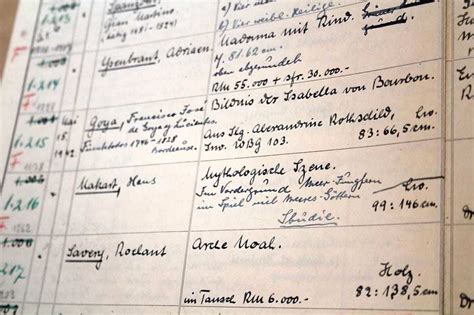 Gian Martino
a) Vier Heilige.
b) Vier weibl. Heilige.
Ysenbrant, Adriaen
Madonna mit Kind.
81:62 cm
oben abgerundet
RM 55.000 + sfr. 30.000.-
1.215
Mai
1942
Goya, Francisco José
de Goya y Lucientes
Fuentetodos 1746-1828
Bordeaux.
Bildnis der Isabella von Bourbon.
Aus Slg. Alexandrine Rothschild,
Inv. WBG 103.
Lw.
83:66,5 cm
1.216
Makart, Hans
Mythologische Szene.
Im Vordergrund Meer-Jungfrau
im Spiel mit Meeres-Göttern
Studie.
Lw.
99:146 cm.
Savery, Roelant
Arche Noah.
im Tausch RM 6.000.-
Holz
82:138,5 cm